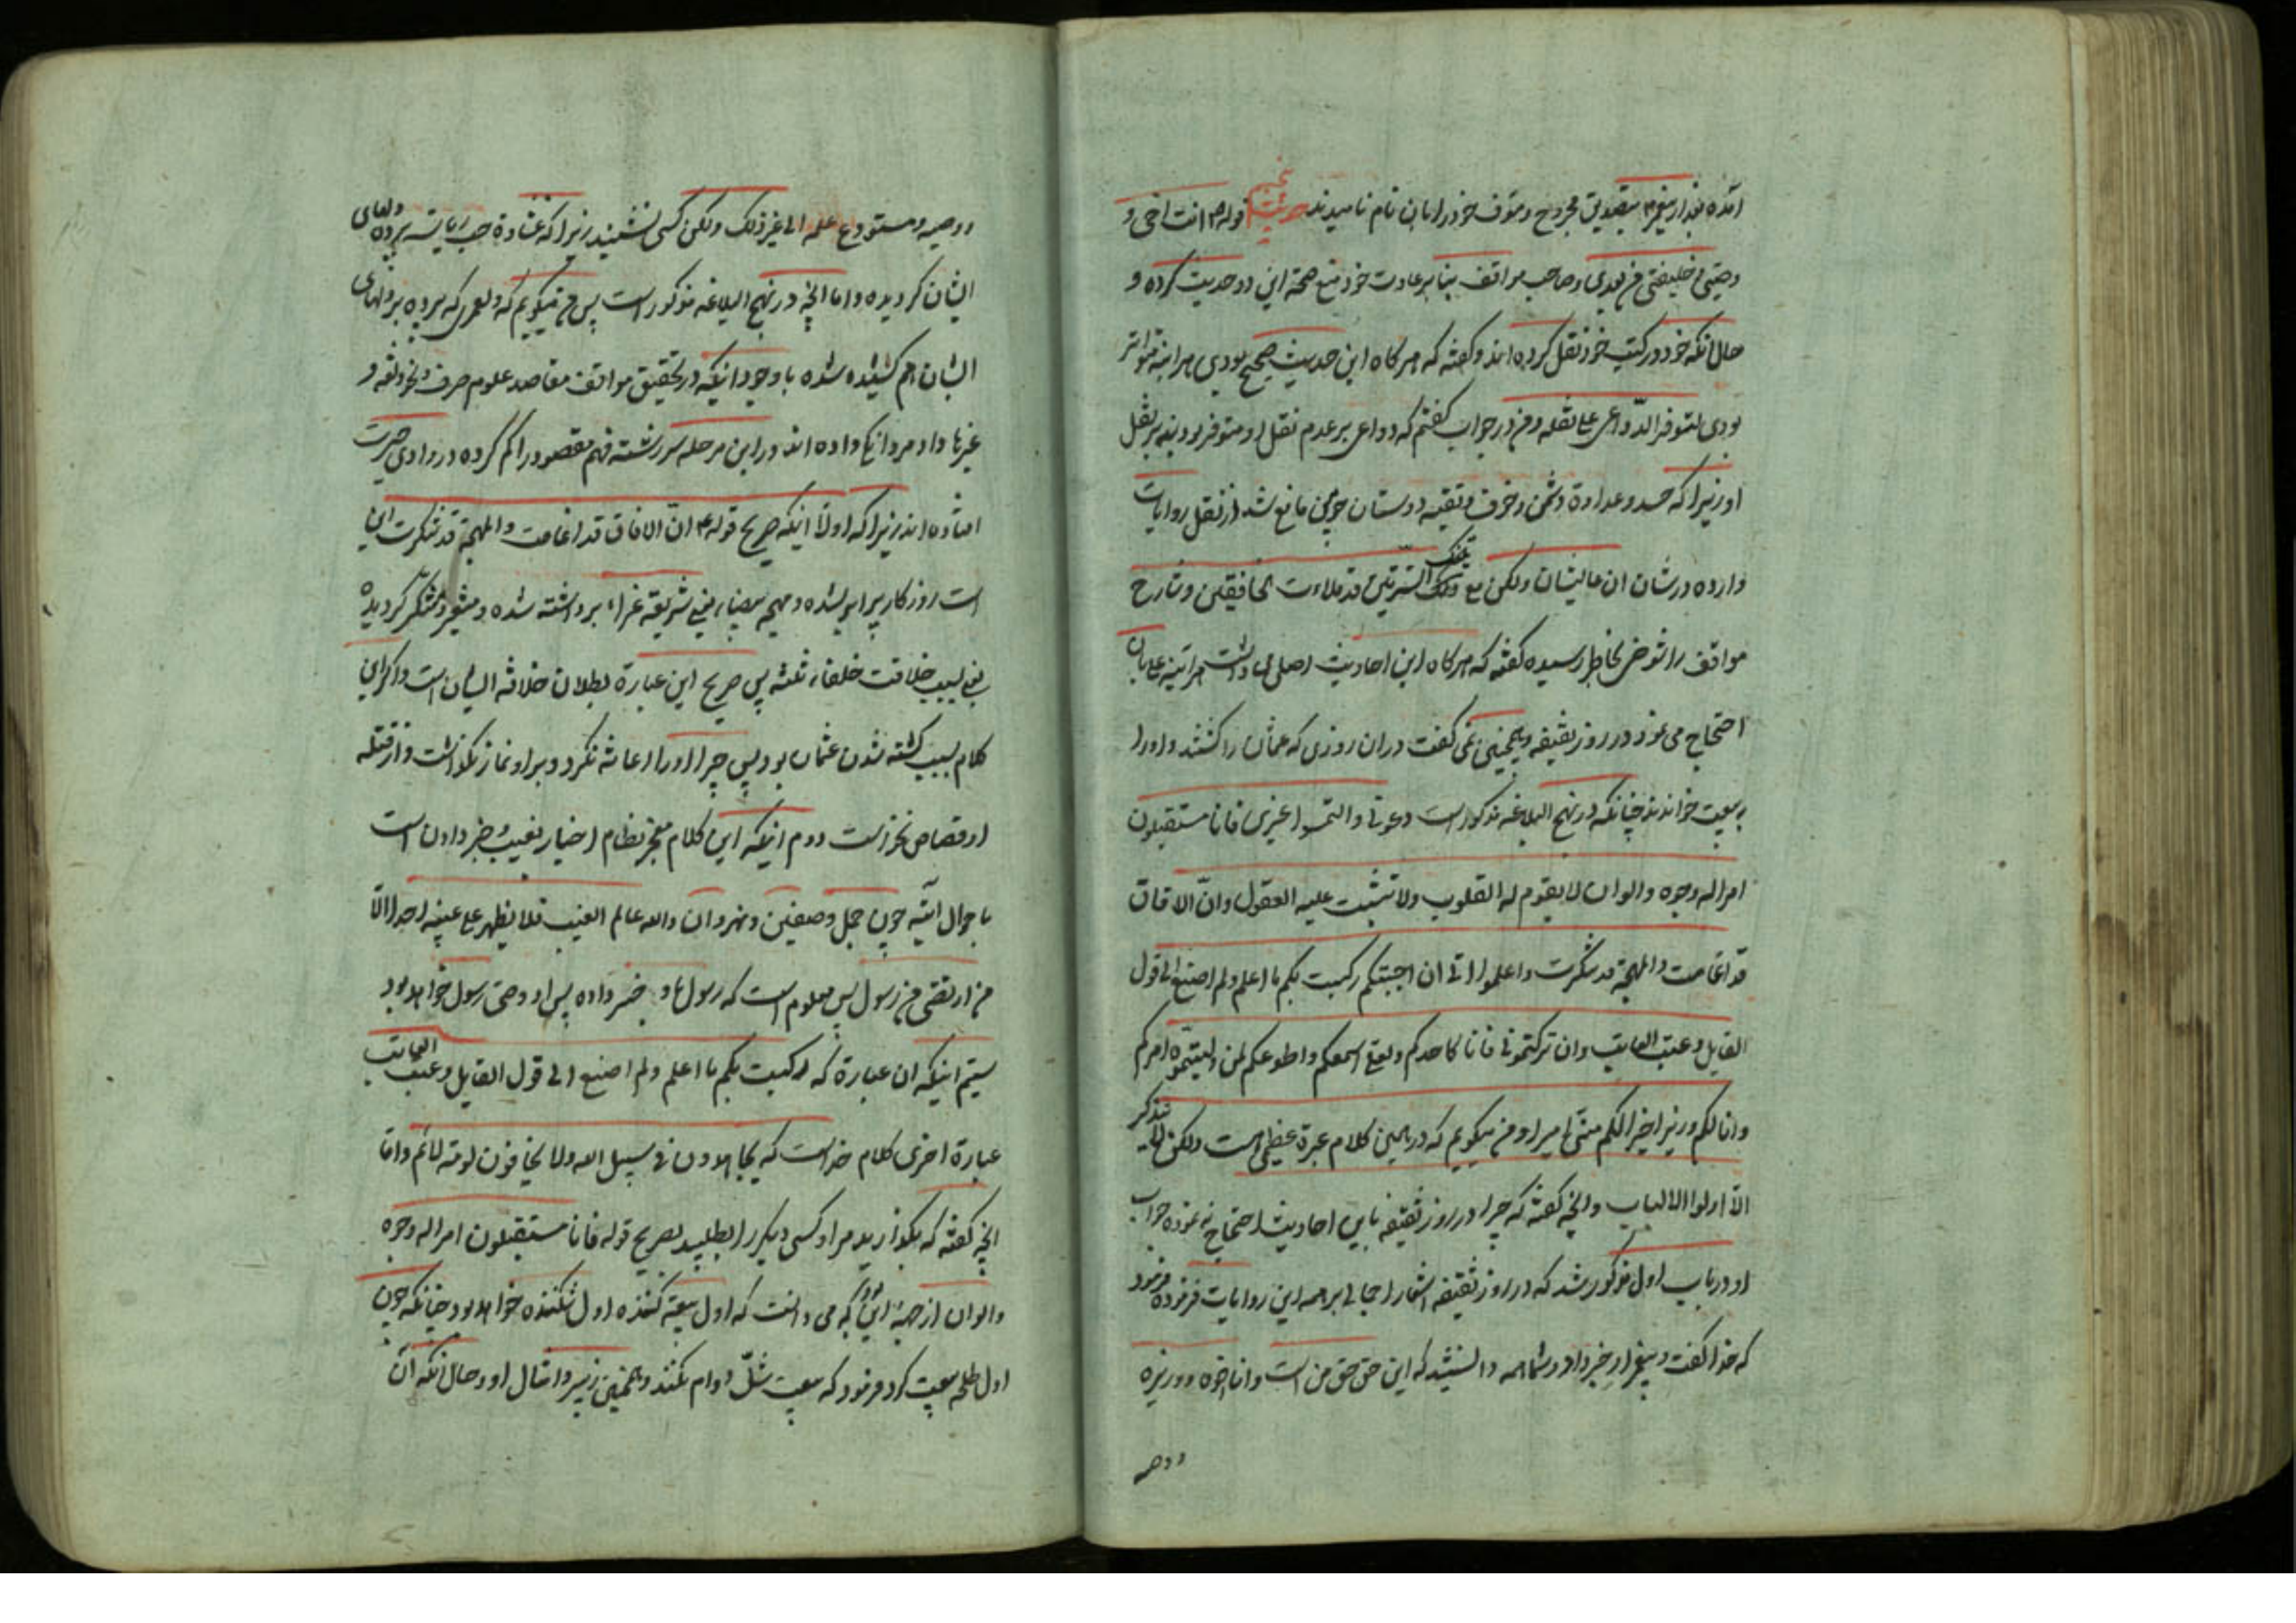 آمده بود از پیغمبر بتصدیق مجروح و متوقف خود را بان نام نامیدند حدیث پنجم قوله ۴ انت اخی و
وصیی و خلیفتی من بعدی و صاحب مواقف بنا بر عادت خود منع صحة این دو حدیث کرده و
حال انکه خود در کتب خود نقل کرده اند و گفته که هر کاه این حدیث صحیح بودی هر اینه متواتر
بودی لتوفر الدّواعی علی نقله و من در جواب گفتم که دواعی بر عدم نقل او متوفر بودند بر نقل
او زیرا که حسد و عداوة دشمن و خوف و تقیه دوستان مانع شد از نقل روایات
وارده در شان ان عالیشان ولکن مع ذلک قد ملاءت الخافقین و شارح
مواقف را شوخی بخاطر رسیده گفته که هر کاه این احادیث اصلی میداشت هر اینه علی بان
احتجاج می نمود در روز ثقیفه و همچنین نمی گفت در ان روزی که عثمان را کشتند و اورا
به بیعت خواندند چنانکه در نهج البلاغه مذکور است دعونی و التمسوا غیری فانا مستقبلون
امرا له وجوه و الوان لا یقوم له القلوب ولا تثبت علیه العقول وانّ الافاق
قد اغامت و المهجة قد تنکرت و اعلموا انی ان اجبتکم رکبت بکم ما اعلم ولم اصنع الی قول
القایل و عتب العاتب وان ترکتمونی فانا کاحدکم ولعلی اسمعکم و اطوعکم لمن ولیتموه امرکم
وانا لکم وزیرا خیر الکم منّی امیرا و من میکویم که در همین کلام عبرة عظیمی است ولکن لا یتذکر
الا اولوا الالباب و انچه گفته که چرا در روز ثقیفه باین احادیث احتجاج نه نموده جواب
او در باب اول مذکور شد که در روز ثقیفه اشعار اجمالی بر همه این روایات فرموده فرمود
که خدا گفت و پیغمبر خبر داد و شما همه دانستید که این حق حق من است و انا اخوه و وزیره
ووصیه
ووصیه و مستودع علمه الی غیر ذلک ولکن کسی نشنید زیرا که غشاوة حب ریاست پرده دلهای
ایشان کردیده و اما انچه در نهج البلاغه مذکور است پس من میکویم که ولعمری که پرده بر دلهای
ایشان هم کشیده شده با وجود انیکه در تحقیق مواقف مقاصد علوم صرف و نحو و لغه و
غیرها داد مردانگی داده اند در این مرحله سر رشته فهم مقصود را کم کرده در وادی حیرت
افتاده اند زیرا که اولا اینکه صریح قوله ۴ انّ الافاق قد اغامت و المهجة قد تنکرت این
است روزکار پر ابر شده و مهجه بیضاء یعنی شریعة غراء برداشته شده و متغیر و متنکّر کردیده
یعنی بسبب خلافت خلفاء ثلثه پس صریح این عبارة بطلان خلافه ایشان است و اکر این
کلام بسبب کشته شدن عثمان بود پس چرا اورا اعانه نکرد و بر او نماز نکذاشت و از قتله
او قصاص نخواست دوم انیکه این کلام معجز نظام اخبار بغیب و خبر دادن است
باحوال اتیه چون جمل و صفین و نهروان والله عالم الغیب فلا یظهر علی غیبه احدا الّا
من ارتضی من رسول پس معلوم است که رسول باو خبر داده پس او وصی رسول خواهد بود
سیّم انیکه ان عبارة که رکبت بکم ما اعلم ولم اصنع الی قول القایل و عتب العاتب
عبارة اخری کلام خداست که یجاهدون فی سبیل الله ولا یخافون لومة لائم و امّا
انچه گفته که بکذارید مرا و کسی دیکر را بطلبید بصریح قوله فانا مستقبلون امرا له وجوه
والوان از جهة این که می دانست که اول بیعة کننده اول شکننده خواهد بود چنانکه چون
اول طلحه بیعت کرد فرمود که بیعت شلّ دوام نکند و همچنین زبیر و امثال او و حال انکه ان